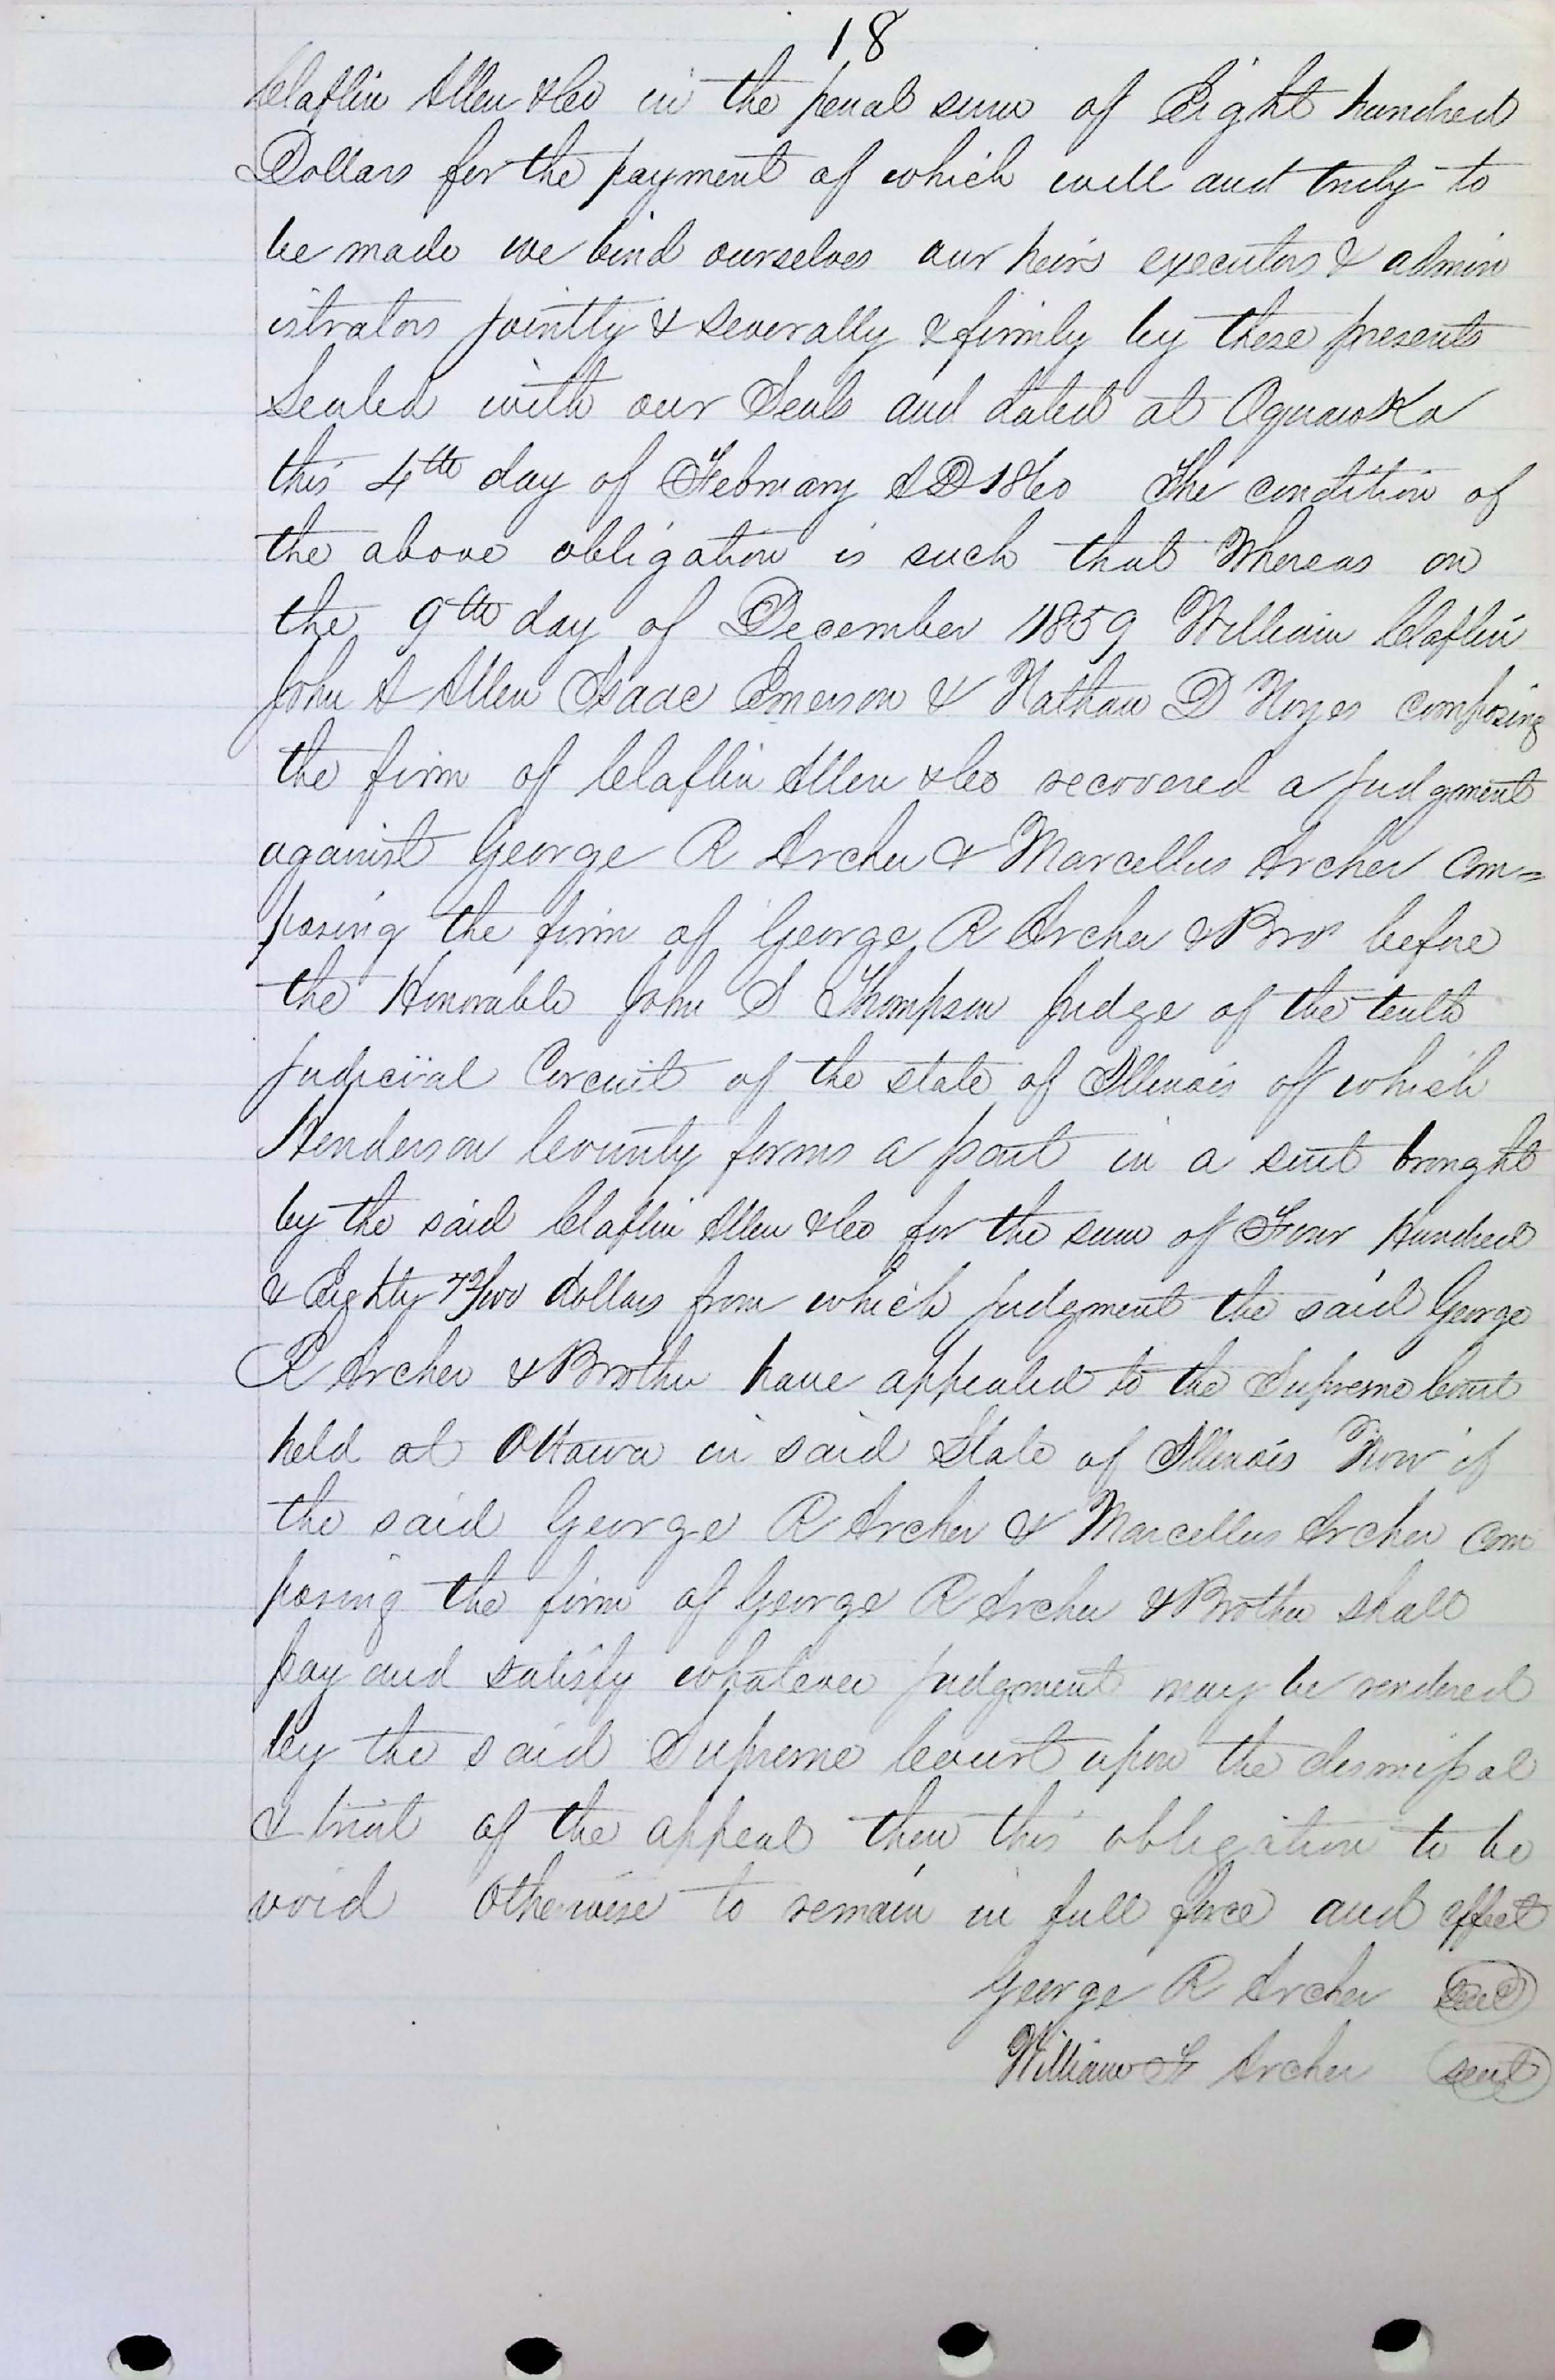 18
Claflin Allen & Co in the penal sum of Eight hundred
Dollars for the payment of which well and truly to
be made we bind ourselves our heirs executors & admin
istrators jointly & severally & firmly by these presents
Sealed with our Seals and dated at Oquawka
this 4th day of February AD 1860 The condition of
the above obligation is such that Whereas on
the 9th day of December 1859 William Claflin
John A Allen Isaac Emerson & Nathan D Noyes composing
the firm of Claflin Allen & Co recovered a judgment
against George R Archer & Marcellus Archer com=
posing the firm of George R Archer & Bro before
the Honorable John S Thompson Judge of the tenth
Judicial Circuit of the state of Illinois of which
Henderson County forms a part in a suit brought
by the said Claflin Allen & Co for the sum of Four Hundred
& Eighty 72/100 dollars from which judgment the said George
R Archer & Brother have appealed to the Supreme Court
held at Ottawa in said State of Illinois Now if
the said George R Archer & Marcellus Archer com
posing the firm of George R Archer & Brother shall
pay and satisfy whatever judgment may be rendered
by the said Supreme Court upon the dismissal
& trial of the appeal then this obligation to be
void Otherwise to remain in full force and effect
George R Archer Seal
William F Archer seal